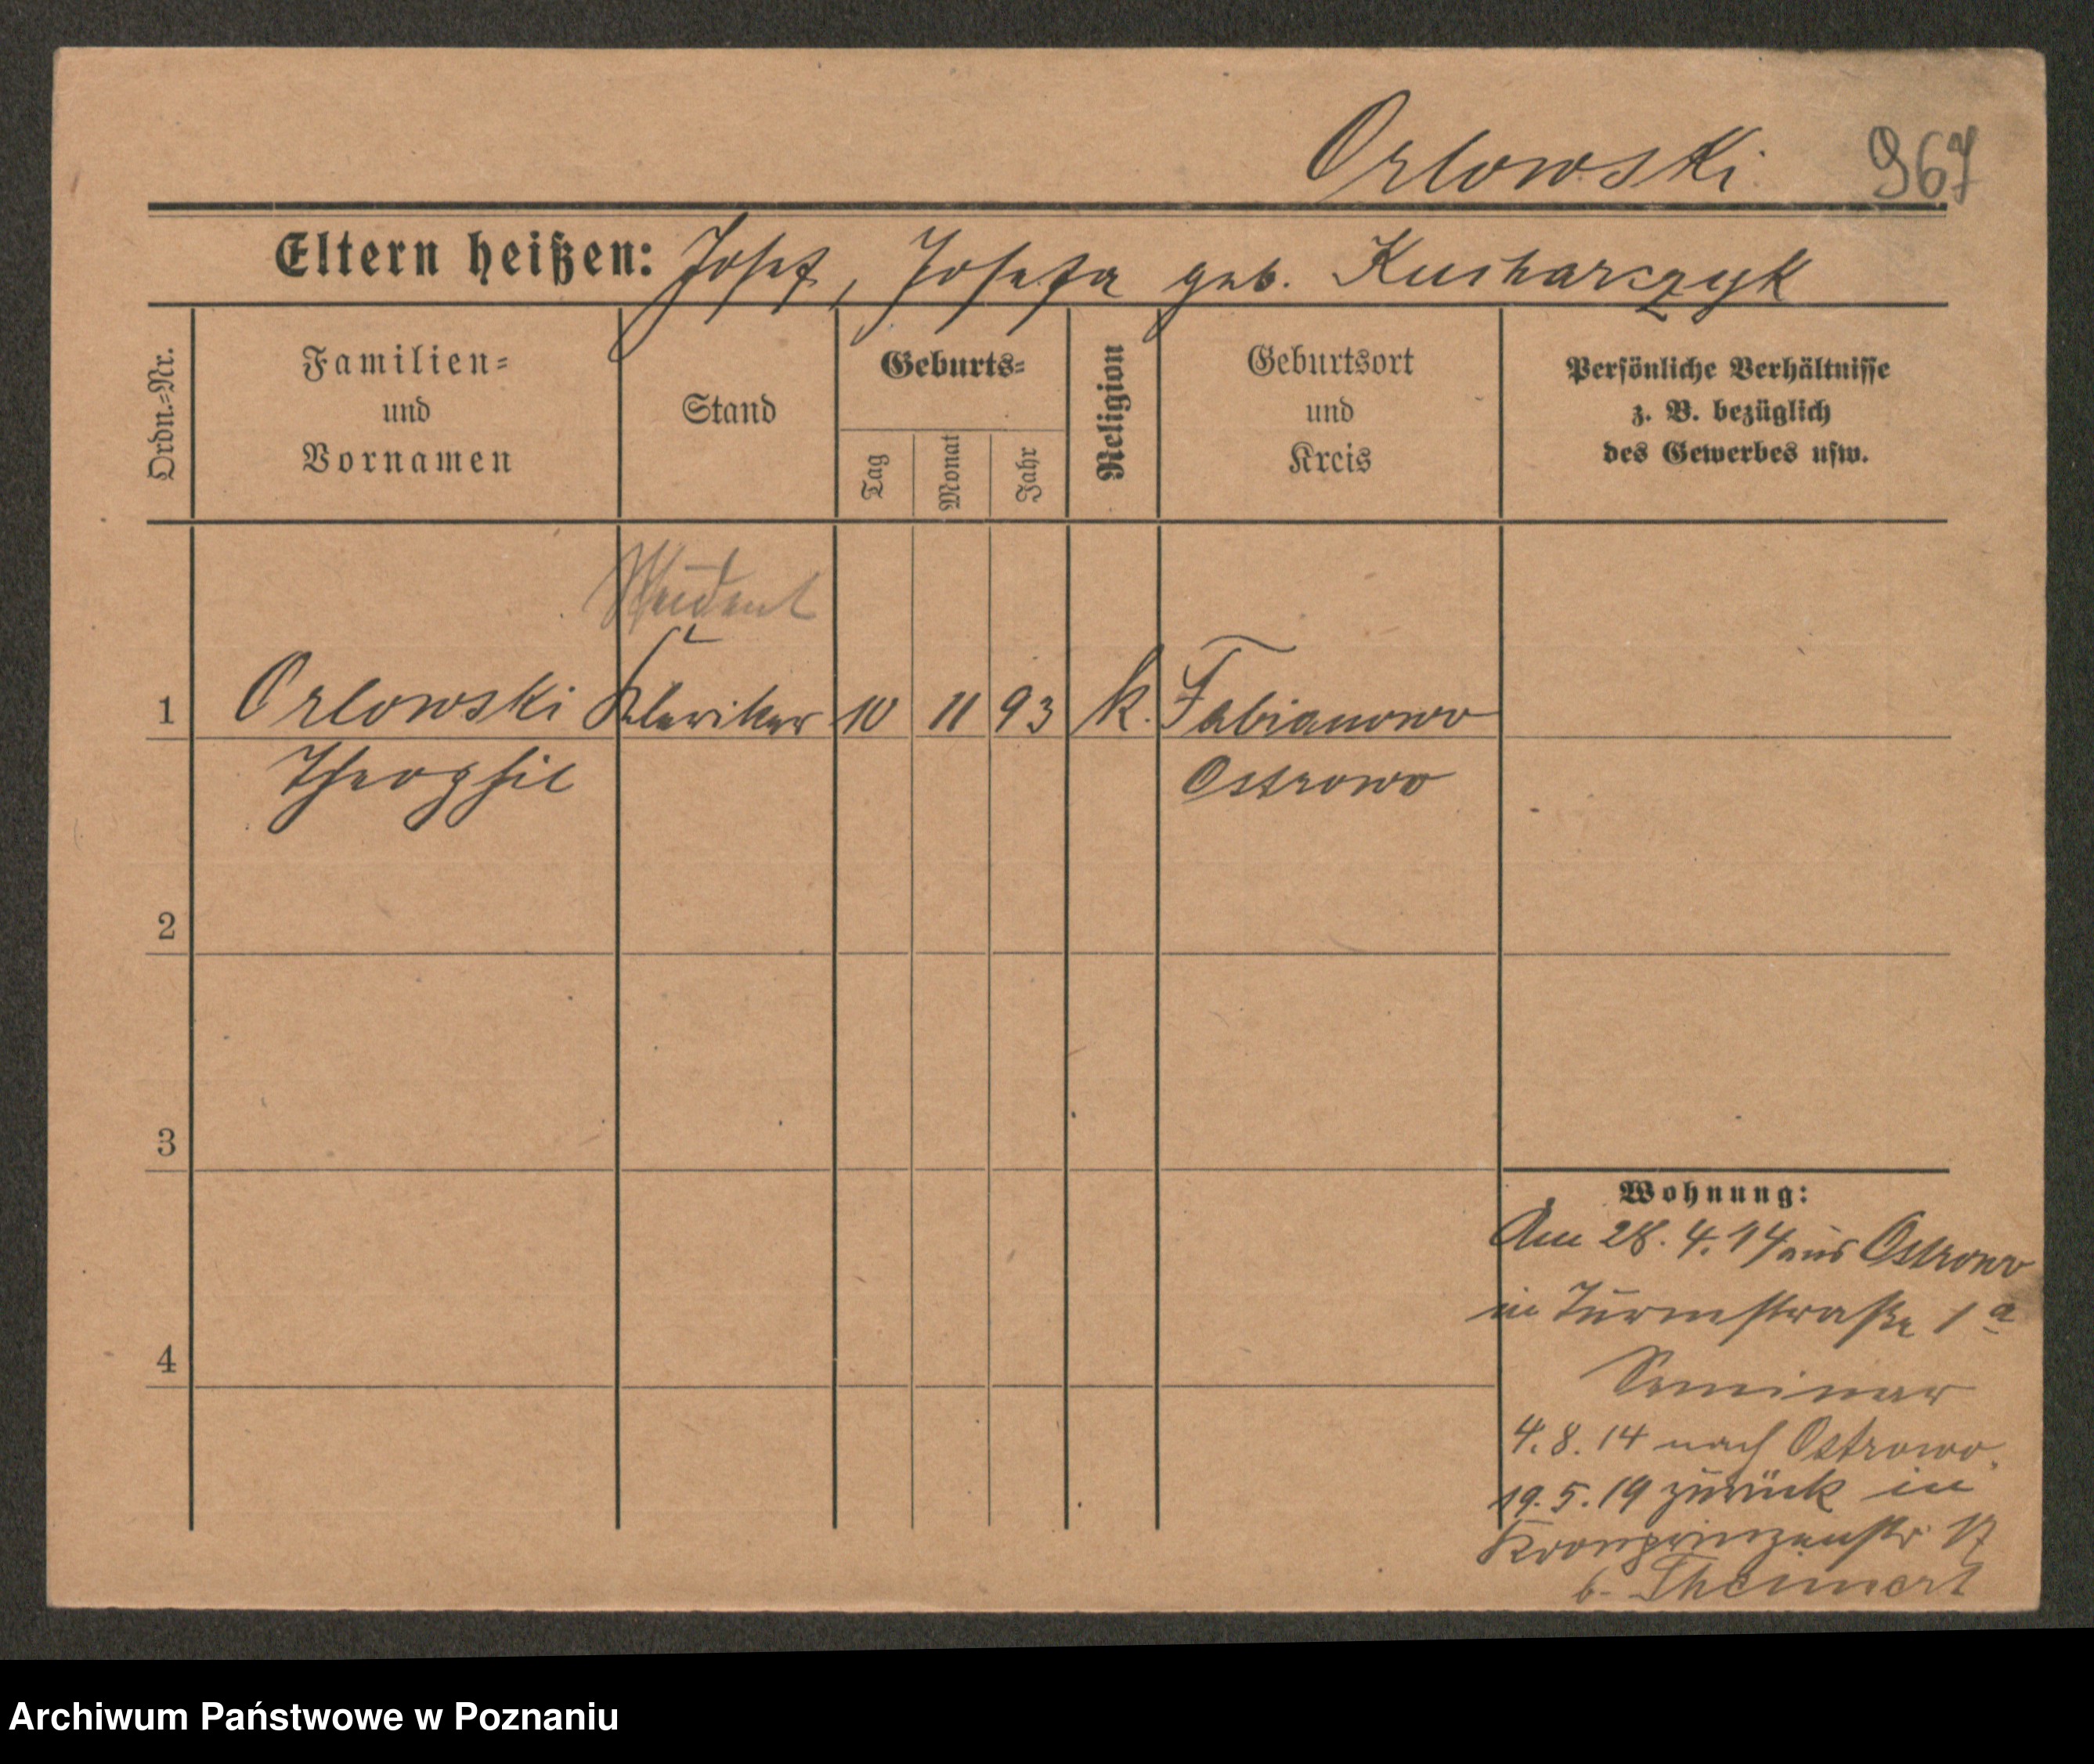 Orlowski 967
Eltern heißen: Josef, Josefa geb. Kucharczyk
Ordn.-Nr.
Familien-
und
Vornamen
Stand
Geburts-
Tag
Monat
Jahr
Religion
Geburtsort
und
Kreis
Persönliche Verhältnisse
z. B. bezüglich
des Gewerbes usw.
Student
1 Orlowski Kleriker 10 11 93 k. Fabianowo
Theophil Ostrowo
2
3
4
Wohnung:
Am 28. 4. 14 aus Ostrowo
in Turmstraße 1 a
Seminar
4. 8. 14 nach Ostrowo.
19. 5. 19 zurück in
Kronprinzenstr. 17
b. Theinert
Archiwum Państwowe w Poznaniu